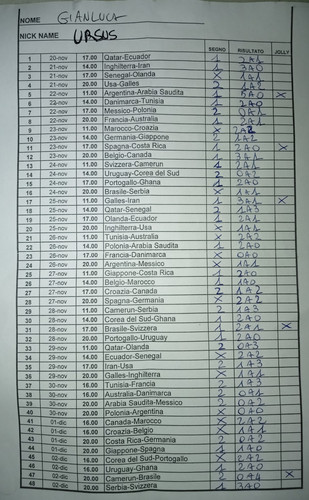 NOME GIANLUCA
NICK NAME URSUS
SEGNO RISULTATO JOLLY
1 20-nov 17.00 Qatar-Ecuador 1 2A1
2 21-nov 14.00 Inghilterra-Iran 1 3A0
3 21-nov 17.00 Senegal-Olanda X 1A1
4 21-nov 20.00 Usa-Galles 2 1A2
5 22-nov 11.00 Argentina-Arabia Saudita 1 X
6 22-nov 14.00 Danimarca-Tunisia 1 2A0
7 22-nov 17.00 Messico-Polonia 2 0A1
8 22-nov 20.00 Francia-Australia 1 2A1
9 23-nov 11.00 Marocco-Croazia X 2A2
10 23-nov 14.00 Germania-Giappone 2 1A2
11 23-nov 17.00 Spagna-Costa Rica 1 2A0 X
12 23-nov 20.00 Belgio-Canada 1 3A1
13 24-nov 11.00 Svizzera-Camerun 1 2A1
14 24-nov 14.00 Uruguay-Corea del Sud 2 0A2
15 24-nov 17.00 Portogallo-Ghana 1 2A0
16 24-nov 20.00 Brasile-Serbia X 1A1
17 25-nov 11.00 Galles-Iran 1 3A1 X
18 25-nov 14.00 Qatar-Senegal 2 1A3
19 25-nov 17.00 Olanda-Ecuador 1 2A1
20 25-nov 20.00 Inghilterra-Usa X 1A1
21 26-nov 11.00 Tunisia-Australia X 2A2
22 26-nov 14.00 Polonia-Arabia Saudita 1 2A0
23 26-nov 17.00 Francia-Danimarca X 0A0
24 26-nov 20.00 Argentina-Messico X 1A1
25 27-nov 11.00 Giappone-Costa Rica 1 2A0
26 27-nov 14.00 Belgio-Marocco 1 1A0
27 27-nov 17.00 Croazia-Canada 2 1A2
28 27-nov 20.00 Spagna-Germania X 2A2
29 28-nov 11.00 Camerun-Serbia 2 1A3
30 28-nov 14.00 Corea del Sud-Ghana 1 2A0
31 28-nov 17.00 Brasile-Svizzera 1 2A1 X
32 28-nov 20.00 Portogallo-Uruguay 1 2A0
33 29-nov 16.00 Qatar-Olanda 2 0A3
34 29-nov 16.00 Ecuador-Senegal X 2A2
35 29-nov 20.00 Iran-Usa 2 1A3
36 29-nov 20.00 Galles-Inghilterra X 1A1
37 30-nov 16.00 Tunisia-Francia 2 1A3
38 30-nov 16.00 Australia-Danimarca 2 0A1
39 30-nov 20.00 Arabia Saudita-Messico 2 0A2
40 30-nov 20.00 Polonia-Argentina X 0A0
41 01-dic 16.00 Canada-Marocco X 2A2
42 01-dic 16.00 Croazia-Belgio X 1A1
43 01-dic 20.00 Costa Rica-Germania 2 0A2
44 01-dic 20.00 Giappone-Spagna 1 1A0
45 02-dic 16.00 Corea del Sud-Portogallo X 2A2
46 02-dic 16.00 Uruguay-Ghana 1 2A0
47 02-dic 20.00 Camerun-Brasile 2 0A1 X
48 02-dic 20.00 Serbia-Svizzera 1 3A0